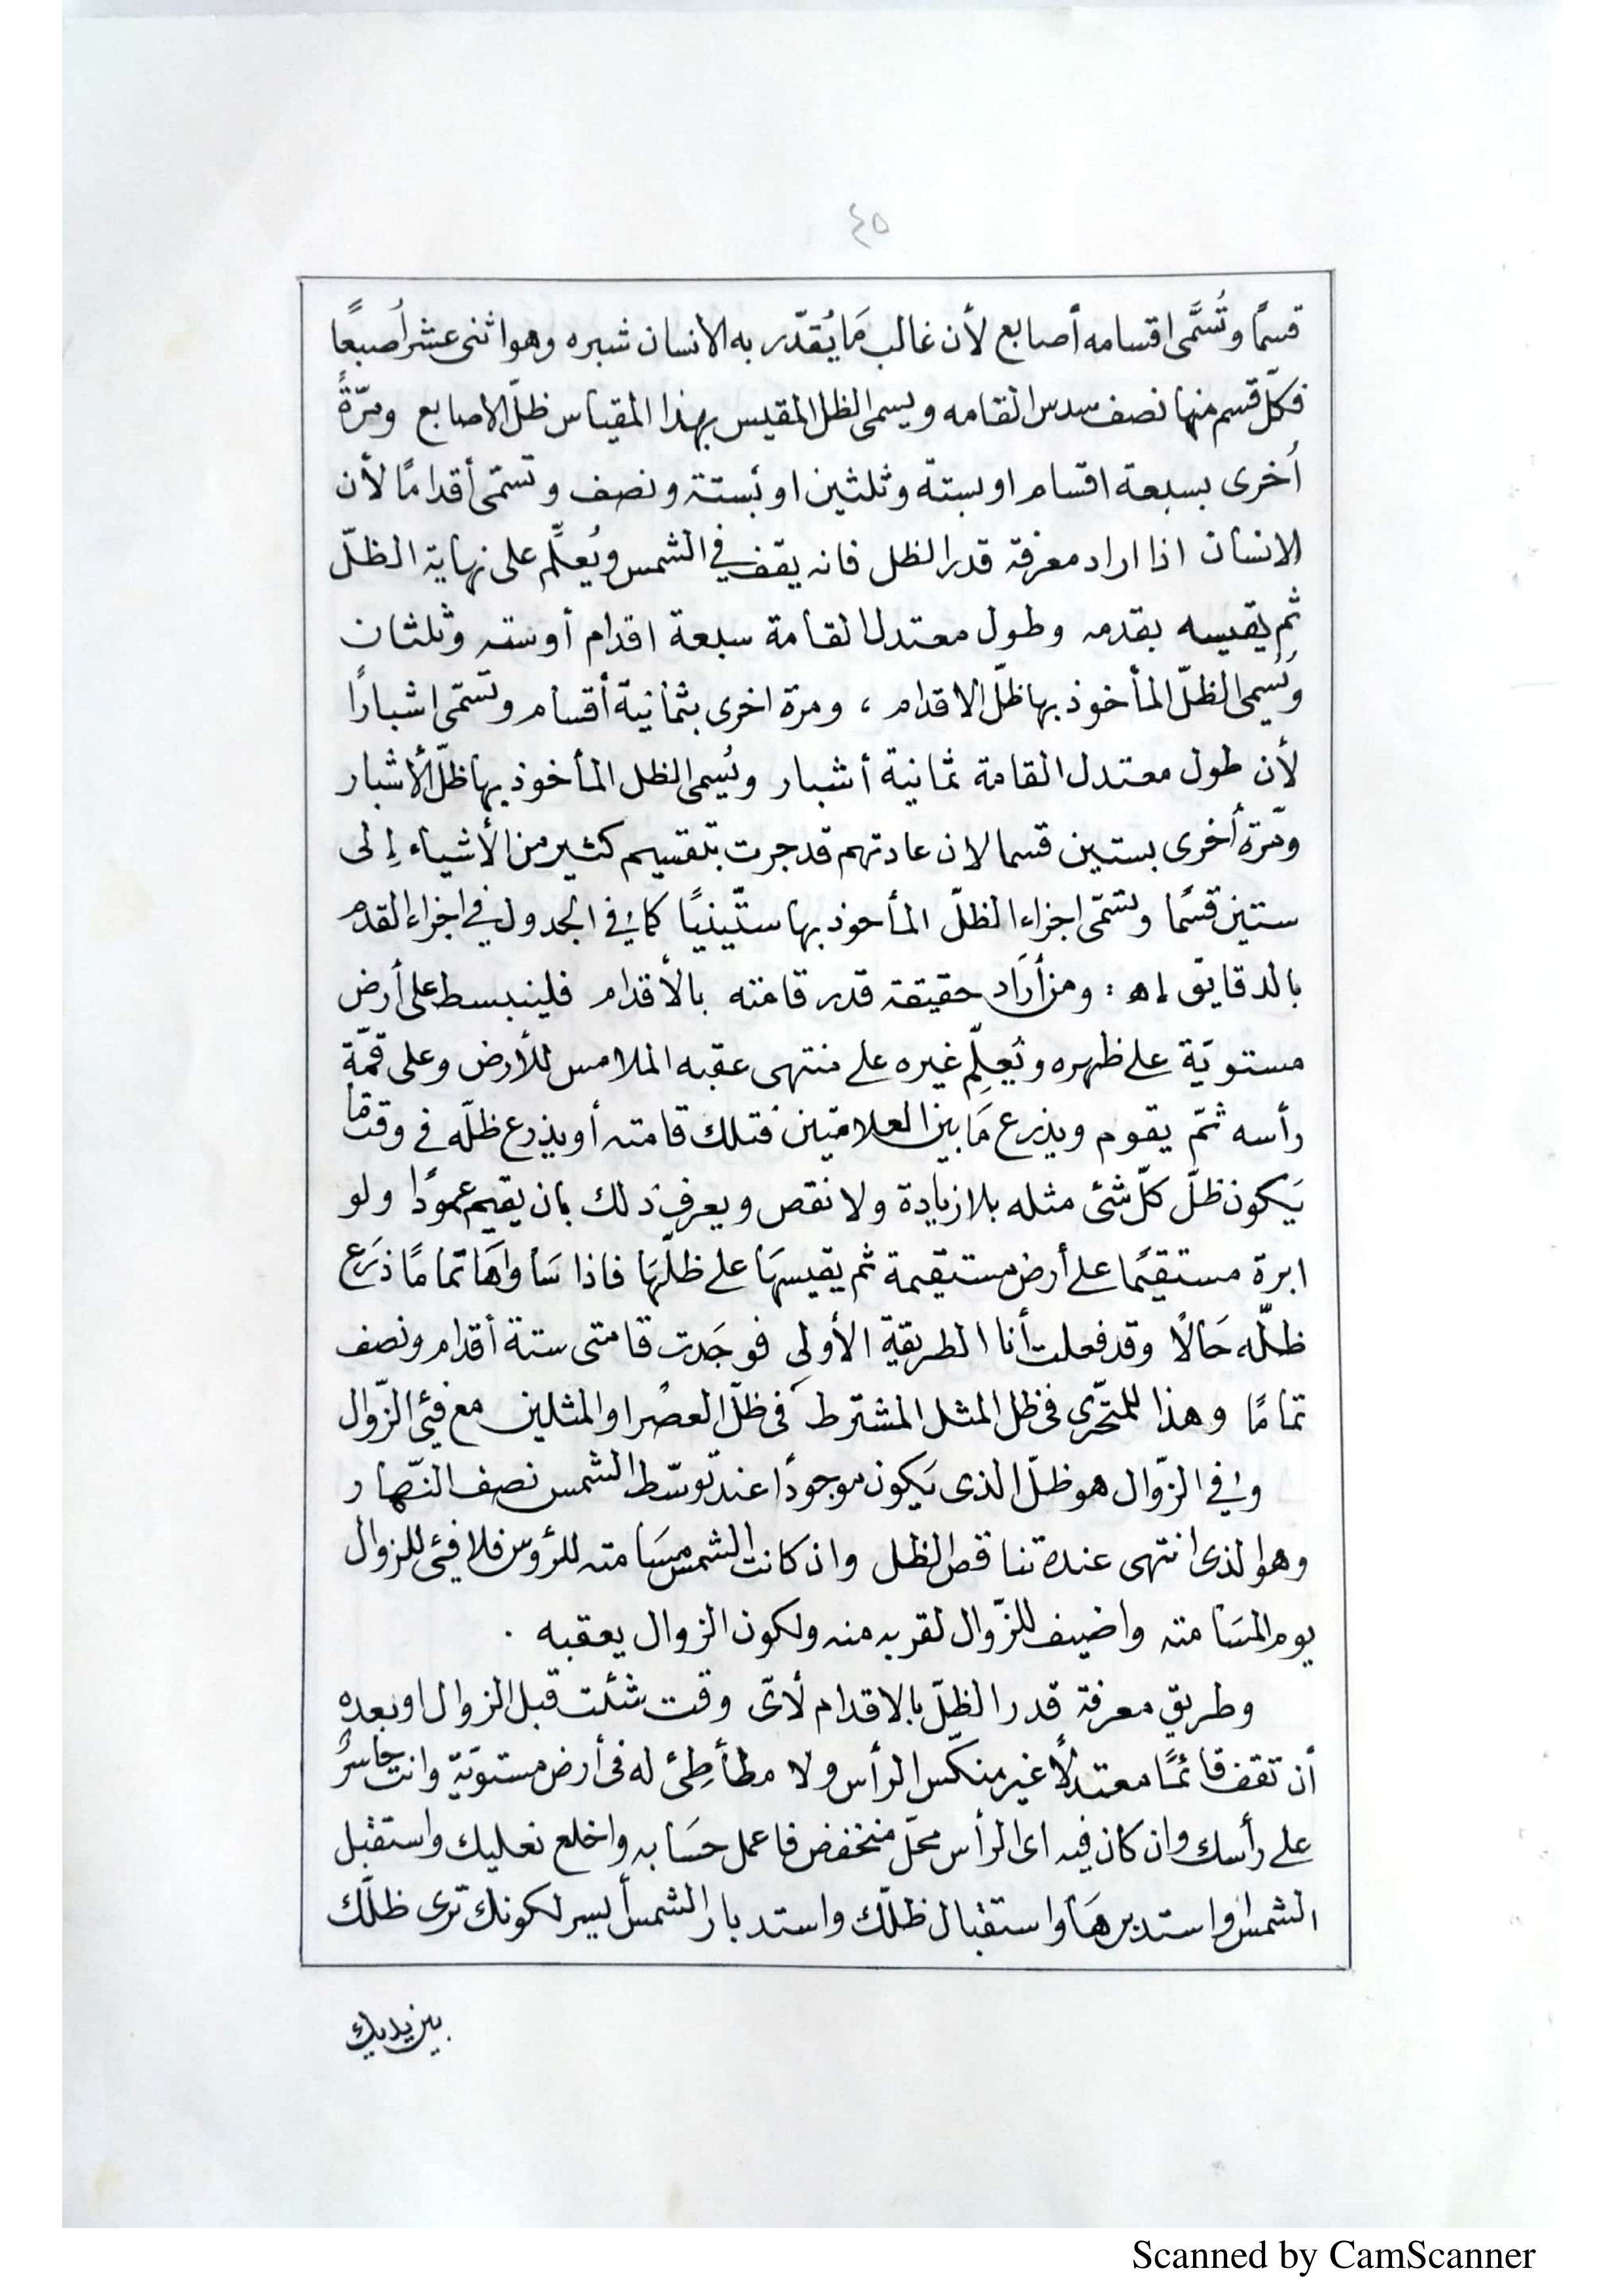 ٤٥
قسمًا وتُسَمَّى اقسامه أصابع لأن غالب مَا يُقدّر به الانسان شبره وهو اثنى عشر أُصبعًا
فكلّ قسم منها نصف سدس القامه ويسمى الظل المقيس بهذا المقياس ظلّ الاصابع ومرّةً
أُخرى بسبعة اقسام او بستة وثلثين او بستة ونصف وتسمّى أقدامًا لأن
الانسان اذا اراد معرفة قدر الظل فانه يقف في الشمس ويُعلِّم على نهاية الظلّ
ثم يقيسه بقدمه وطول معتدل القامة سبعة اقدام أو سته وثلثان
وَيُسمى الظلّ المأخوذ بها ظلّ الاقدام ، ومرة اخرى بثمانية أقسام وتسمّى اشبارًا
لأن طول معتدل القامة ثمانية أشبار ويُسمى الظل المأخوذ بها ظلّ الأشبار
ومَرّة أُخرى بستين قسما لان عادتهم قد جرت بتقسيم كثير من الأشياء إلى
ستين قسمًا وتسمّى اجزاء الظلّ المأخوذ بها ستّينيًا كما في الجدول في اجزاء القدم
بالدقايق اه : ومن أرَاد حقيقة قدر قامته بالأقدام فلينبسط على أرض
مستويّة على ظهره ويُعلِّم غيره على منتهى عقبه الملامس للأرض وعلى قمّة
رأسه ثمّ يقوم ويذرع مَا بين العلامتين فتلك قامته أو يذرع ظلّه فى وقت مّا
يَكون ظلّ كلّ شئ مثله بلا زيادة ولا نقص ويعرف ذلك بان يقيم عمودًا ولو
ابرة مستقيمًا على أرض مستقيمة ثم يقيسهَا على ظلّهَا فاذا سَاواهَا تمامًا ذرَع
ظلّه حَالًا وقد فعلت أنا الطريقة الأولى فوجَدت قامتى ستة أقدام ونصف
تمامًا وهذا للمتحّرى فى ظل المثل المشترط فى ظلّ العصر او المثلين مع فيئ الزّوال
وفي الزّوال هو ظلّ الذى يَكون موجودًا عند توسّط الشمس نصف النّهار
وهو الذى انتهى عنده تناقص الظل وان كانت الشمس مسَامته للرؤس فلا فيئ للزوال
يوم المسَامته واضيف للزّوال لقربه منه ولكون الزوال يعقبه .
وطريق معرفة قدر الظلّ بالاقدام لأىّ وقت شئت قبل الزوال او بعده
أن تقف قائمًا معتدلًا غير منكّس الرأس ولا مطأطِئ له فى أرض مستويّة وانت حاسرٌ
على رأسك وان كان فيه اى الرأس محلّ منخفض فاعمل حسَابه واخلع نعليك واستقبل
الشمس او استدبرهَا واستقبال ظلّك واستدبار الشمس أيسر لكونك ترى ظلّك
بين يديك
Scanned by CamScanner